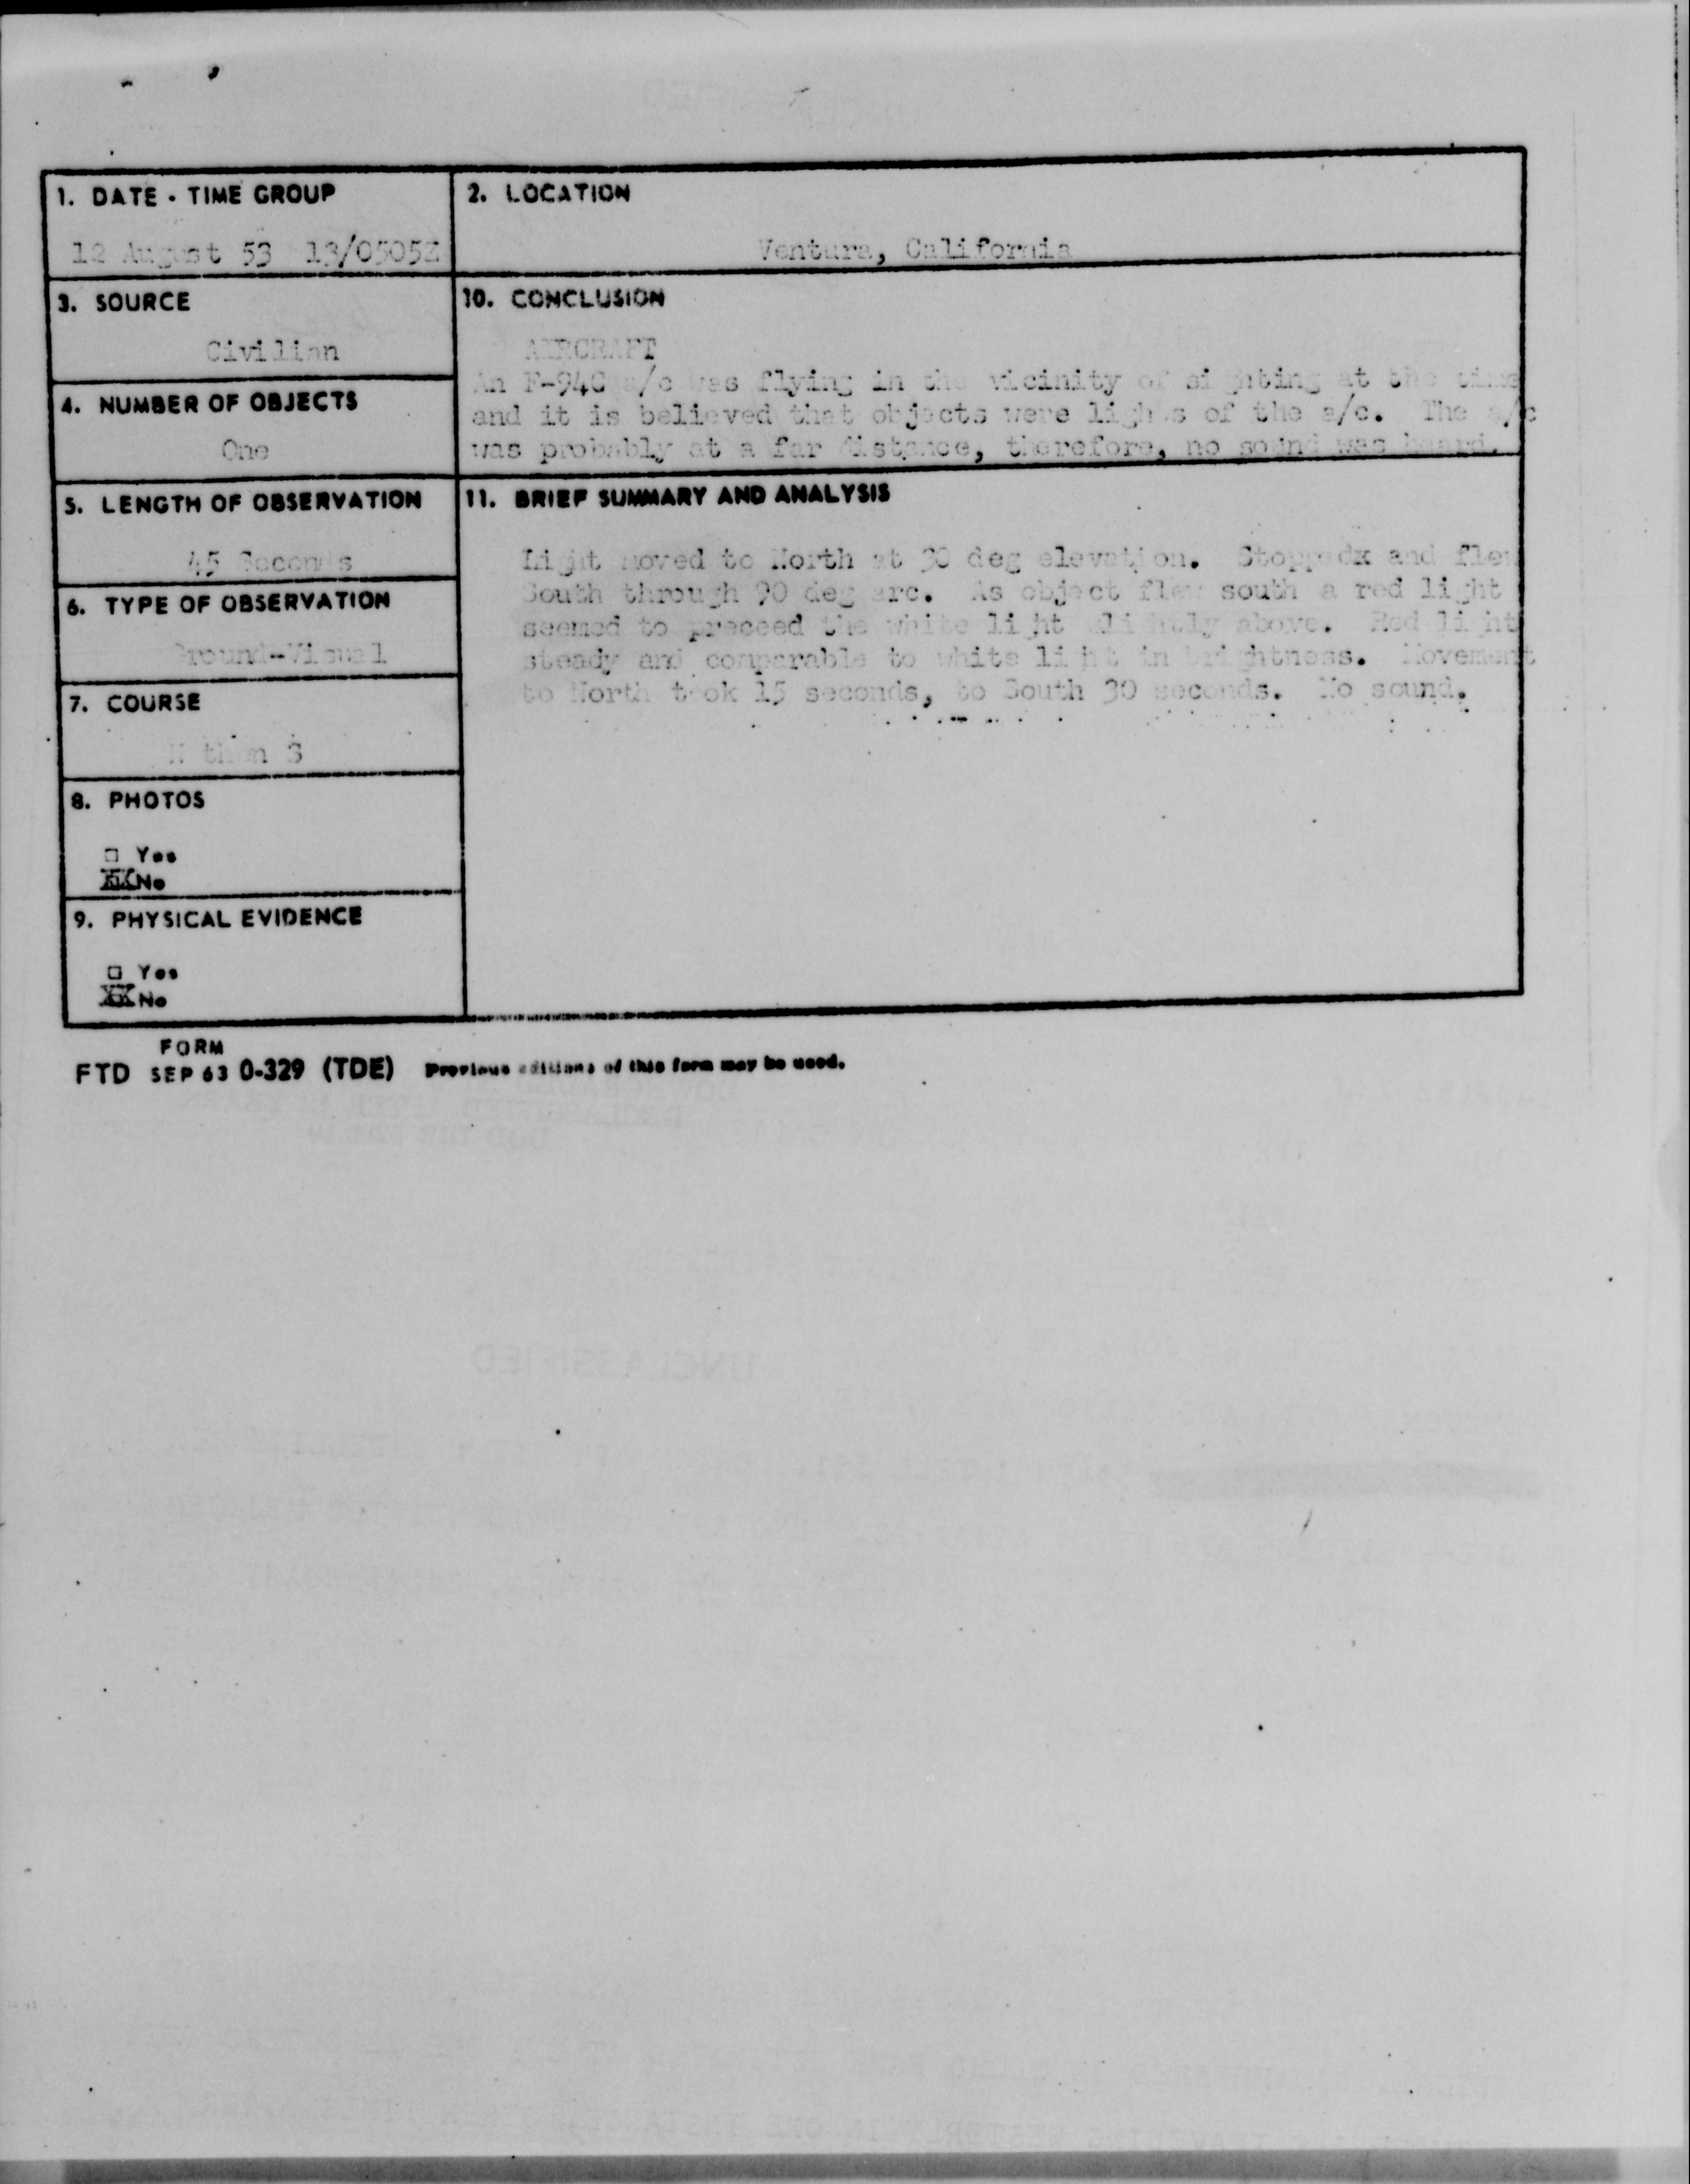 1. DATE - TIME GROUP
12 August 53 13/0505Z
2. LOCATION
Ventura, California
3. SOURCE
Civilian
10. CONCLUSION
AIRCRAFT
An F-94C a/c was flying in the vicinity of sighting at the time
and it is believed that objects were lights of the a/c. The a/c
was probably at a far distance, therefore, no sound was heard.
4. NUMBER OF OBJECTS
One
5. LENGTH OF OBSERVATION
45 Seconds
11. BRIEF SUMMARY AND ANALYSIS
Light moved to North at 30 deg elevation. Stoppedx and flew
South through 90 deg arc. As object flew south a red light
seemed to preceed the white light slightly above. Red light
steady and comparable to white light in brightness. Movement
to North took 15 seconds, to South 30 seconds. No sound.
6. TYPE OF OBSERVATION
Ground-Visual
7. COURSE
N then S
8. PHOTOS
□ Yes
XX No
9. PHYSICAL EVIDENCE
□ Yes
XX No
FORM
FTD SEP 63 0-329 (TDE) Previous editions of this form may be used.
UNCLASSIFIED